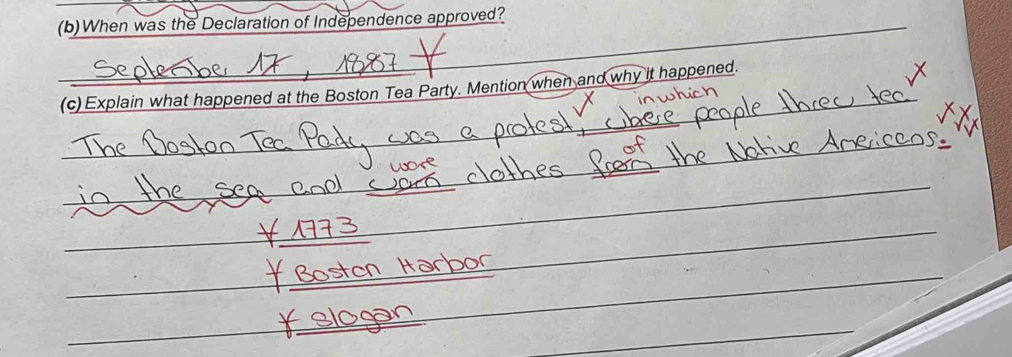 (b) When was the Declaration of Independence approved?
September 17, 1887
(c) Explain what happened at the Boston Tea Party. Mention when and why it happened.
in which
The Boston Tea Party was a protest, where people threw tea
wore of
in the sea and worn clothes from the Native Americans.
1773
Boston Harbor
slogan